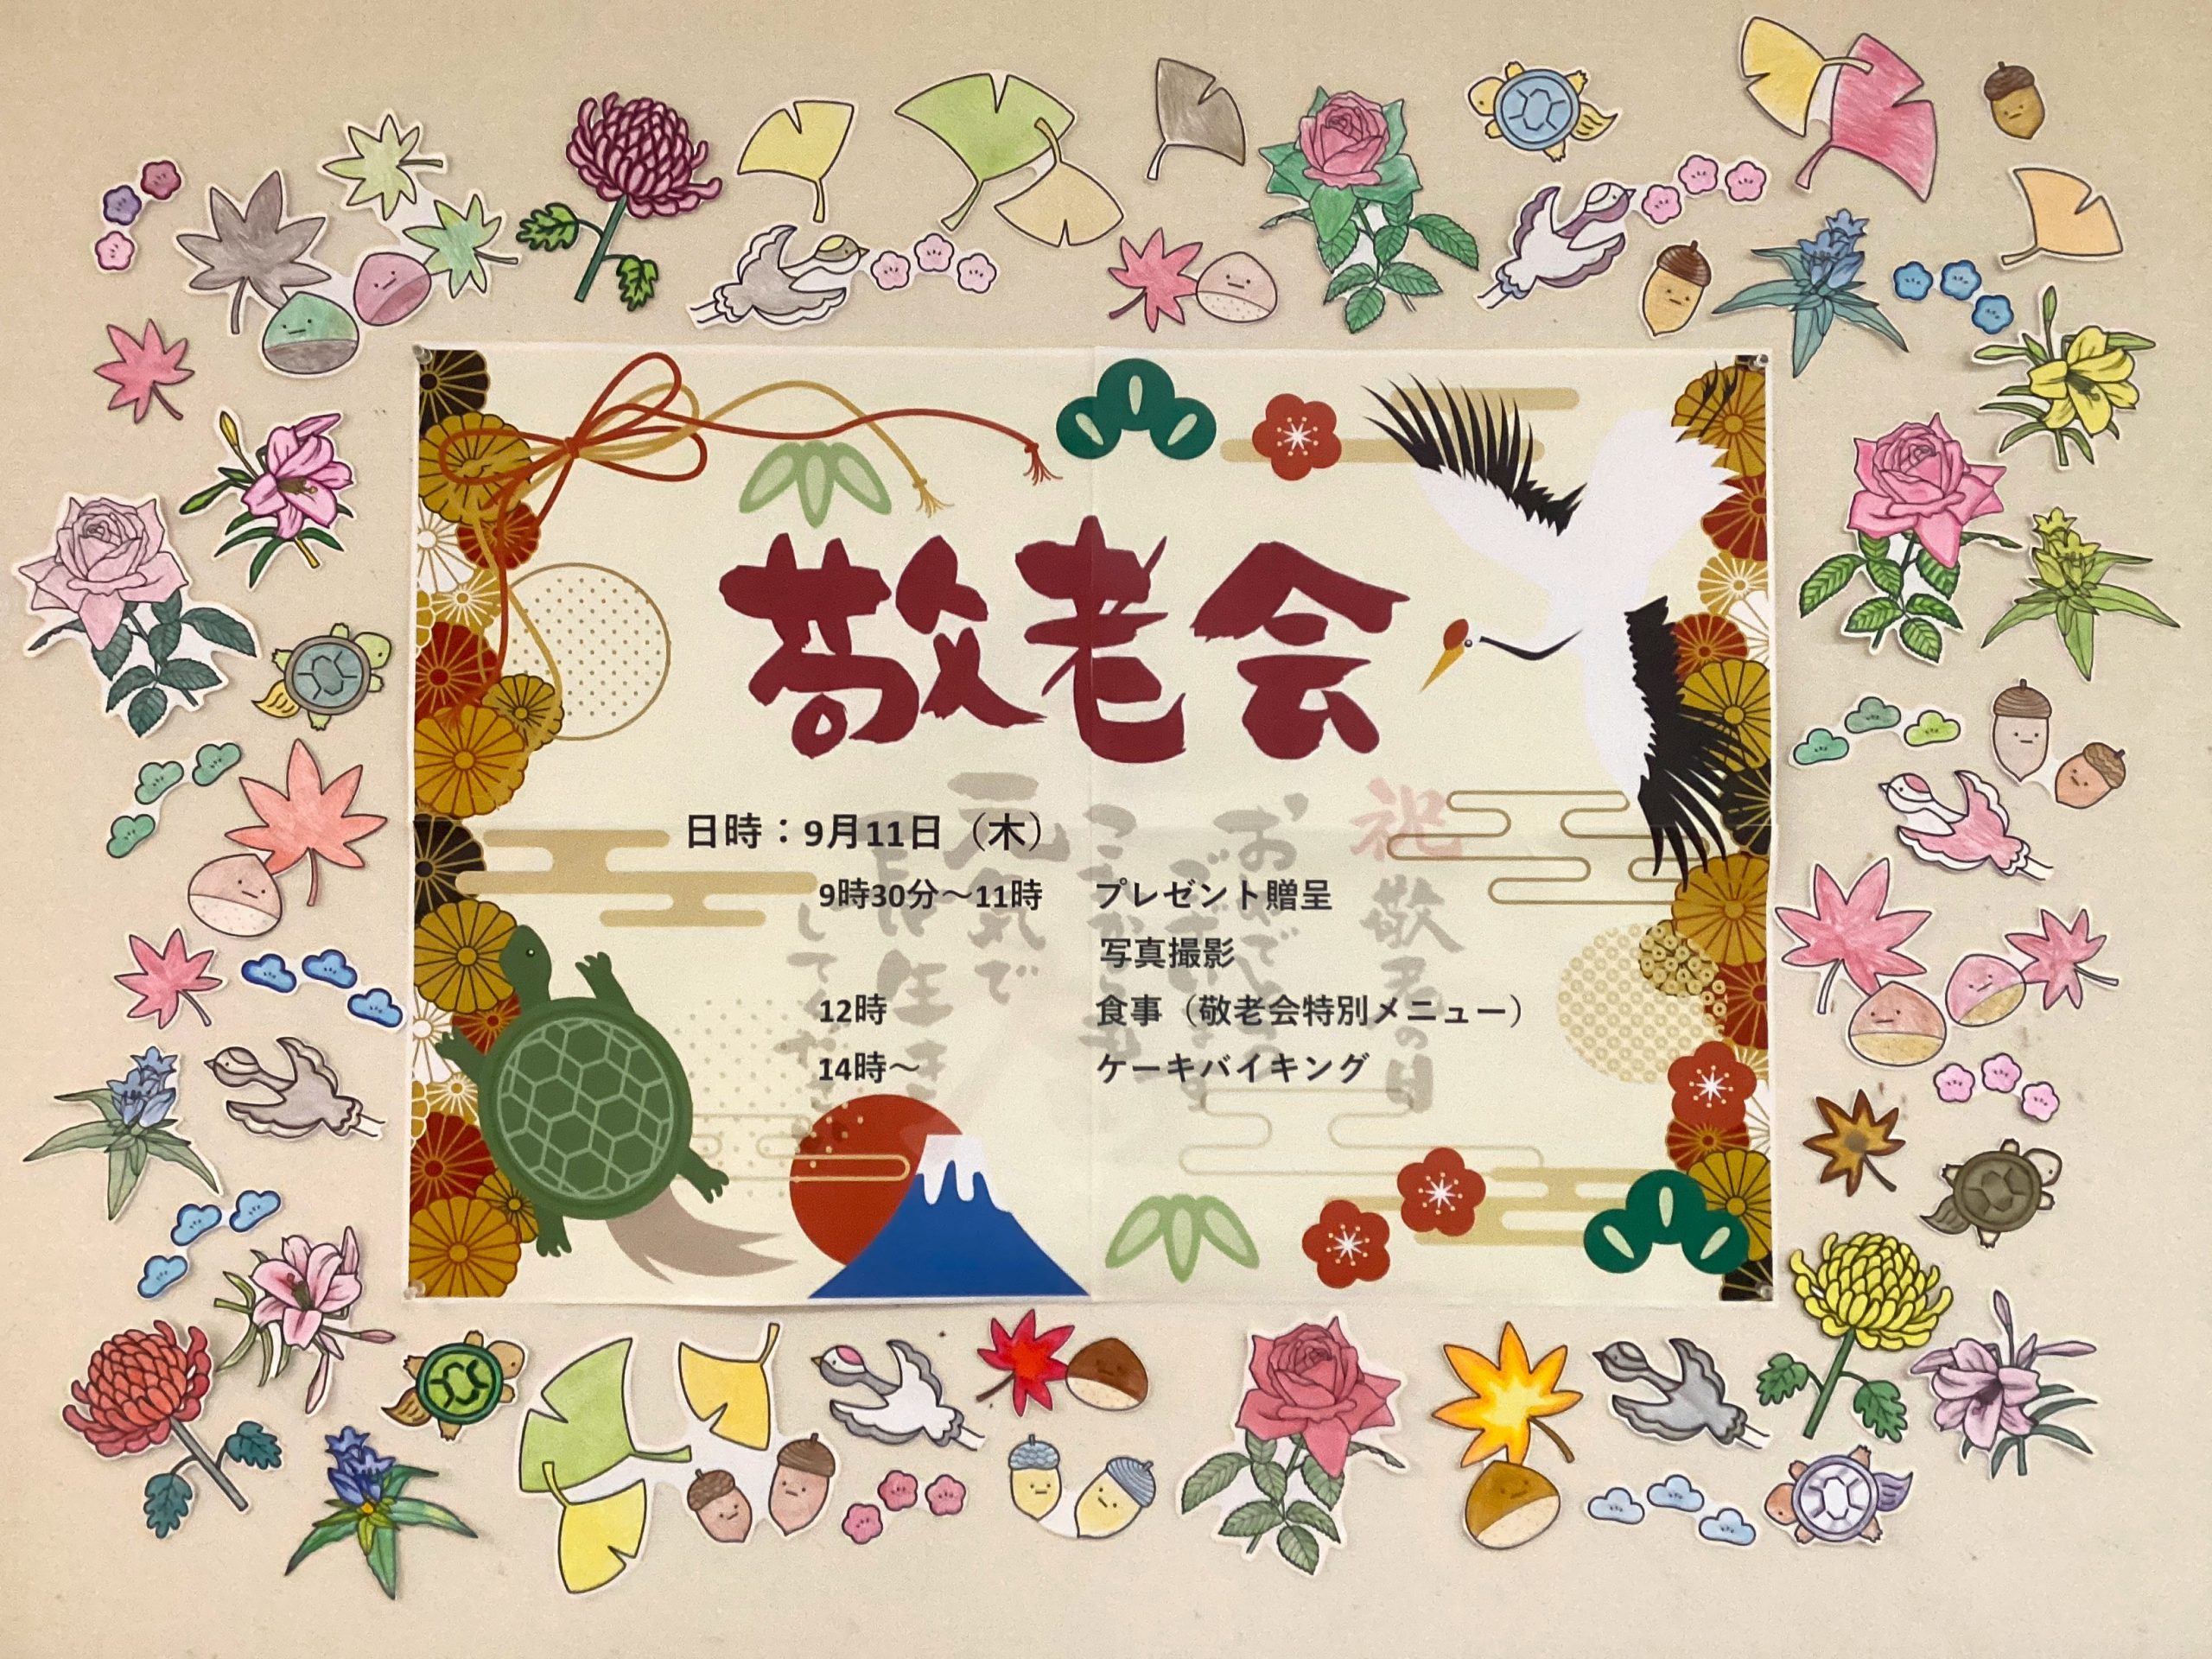 敬老会
日時：9月11日（木）
9時30分～11時　プレゼント贈呈
写真撮影
12時　食事（敬老会特別メニュー）
14時～　ケーキバイキング
祝敬老の日
元気で
長生き
してください